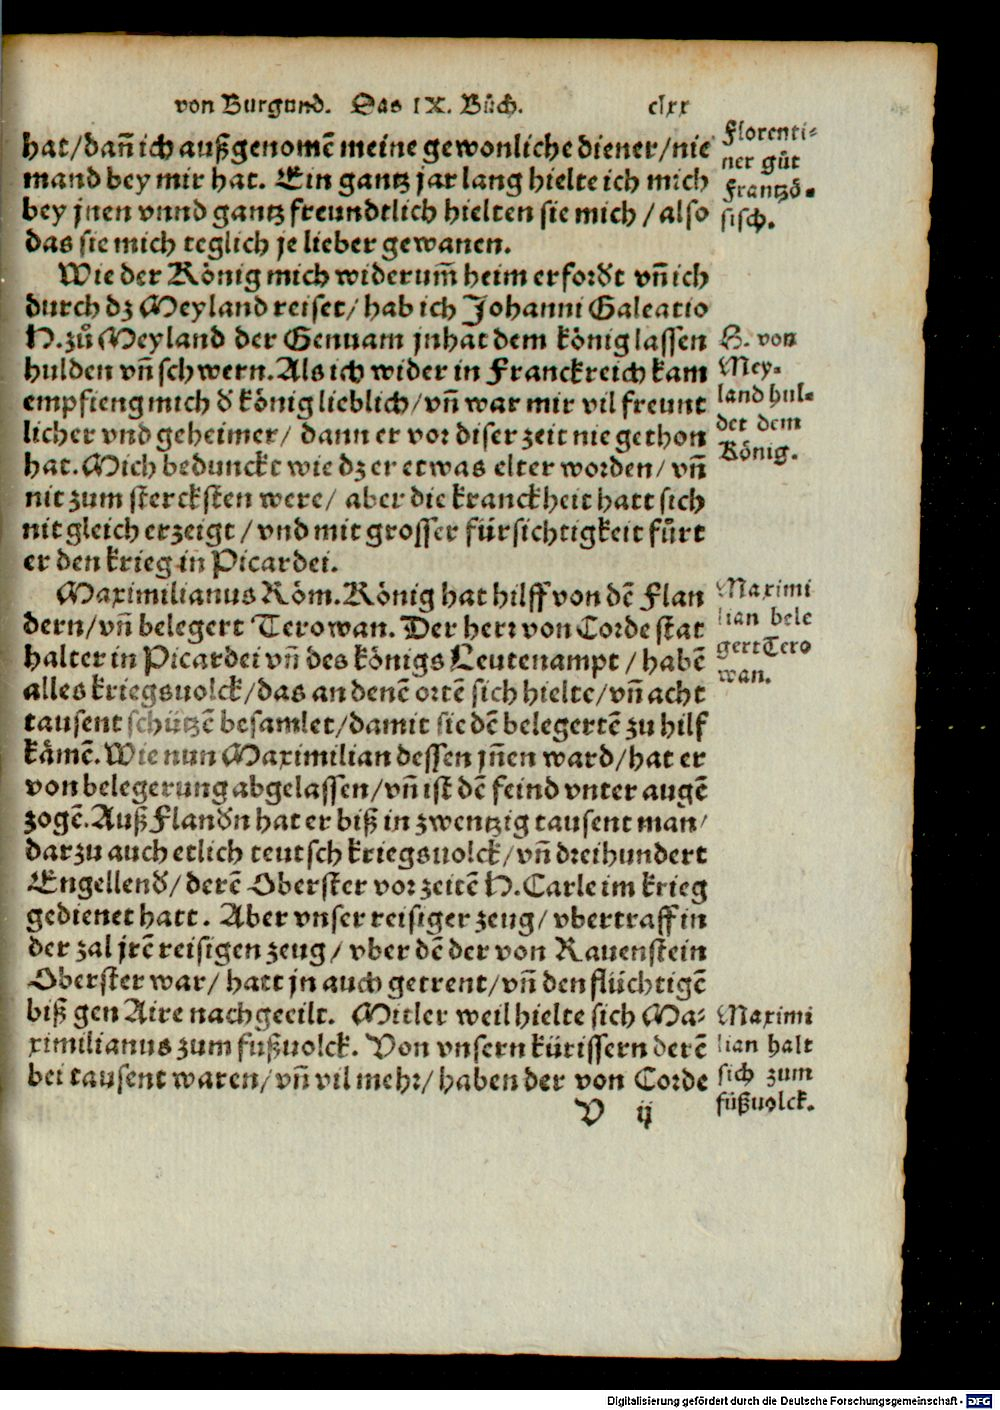 von Burgund. Das IX. Bůch. clxx
hat/dañ ich außgenomẽ meine gewonliche diener/nie
mand bey mir hat. Ein gantz jar lang hielte ich mich
bey jnen vnnd gantz freundtlich hielten sie mich / also
das sie mich teglich je lieber gewanen.
Florenti⸗
ner gůt
Frantzö⸗
sisch.
Wie der König mich widerum̃ heim erfordt vñ ich
durch dz Meyland reiset/ hab ich Johanni Galeatio
H. zů Meyland der Genuam jnhat dem könig lassen
hulden vñ schwern. Als ich wider in Franckreich kam
empfieng mich d könig lieblich/ vñ war mir vil freunt
licher vnd geheimer/ dann er vor diser zeit nie gethon
hat. Mich bedunckt wie dz er etwas elter worden/ vñ
nit zum stercksten were/ aber die kranckheit hatt sich
nit gleich erzeigt / vnd mit grosser fürsichtigkeit fůrt
er den krieg in Picardei.
H. von
Mey⸗
land hul⸗
det dem
König.
Maximilianus Röm. König hat hilff von dẽ Flan
dern/vñ belegert Terowan. Der herr von Corde stat
halter in Picardei vñ des königs Leutenampt / habẽ
alles kriegsuolck/das an denẽ ortẽ sich hielte/vñ acht
tausent schützẽ besamlet/damit sie dẽ belegertẽ zu hilf
kåmẽ. Wie nun Maximilian dessen jñen ward/hat er
von belegerung abgelassen/vñ ist dẽ feind vnter augẽ
zogẽ. Auß Flandn hat er biß in zwentzig tausent man/
darzu auch etlich teutsch kriegsuolck/ vñ dreihundert
Engellend/ derẽ Oberster vor zeitẽ H. Carle im krieg
gedienet hatt. Aber vnser reisiger zeug/ vbertraff in
der zal jrẽ reisigen zeug/ vber dẽ der von Rauenstein
Oberster war/ hatt jn auch getrent/vñ den flüchtigẽ
biß gen Aire nachgeeilt. Mitler weil hielte sich Ma⸗
ximilianus zum fußuolck. Von vnsern kürissern derẽ
bei tausent waren/vñ vil mehr/ haben der von Corde
Maximi
lian bele
gert Tero
wan.
Maximi
lian halt
sich zum
füßuolck.
V ij
Digitalisierung gefördert durch die Deutsche Forschungsgemeinschaft - DFG